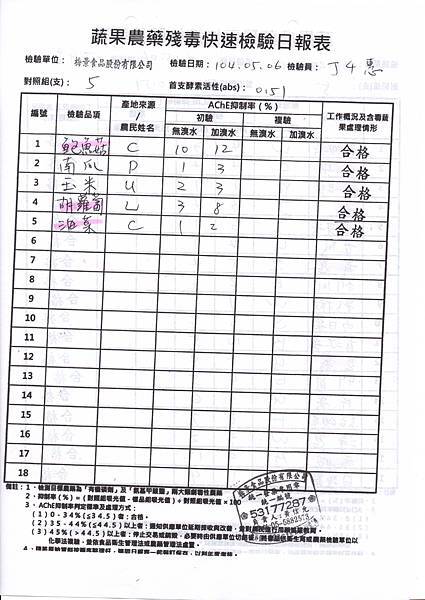 蔬果農藥殘毒快速檢驗日報表
檢驗單位： 裕景食品股份有限公司 檢驗日期：104.05.06 檢驗員：
對照組(支)： 5 首支酵素活性(abs)： 0151
編號 檢驗品項 產地來源/農民姓名 AChE抑制率(%) 工作概況及含毒蔬果處理情形
初驗 複驗
無溴水 加溴水 無溴水 加溴水
1 鮑魚菇 C 10 12 合格
2 南瓜 D 1 3 合格
3 玉米 U 2 3 合格
4 胡蘿蔔 L 3 8 合格
5 油菜 C 1 2 合格
6
7
8
9
10
11
12
13
14
15
16
17
18
備註：1．檢測目標農藥為「有機磷劑」及「氨基甲酸鹽」兩大類劇毒性農藥
2．抑制率(%)=(對照組吸光值－樣品組吸光值)÷對照組吸光值×100
3．AChE抑制率判定標準及處理方式：
(1) 0 - 34%(≦34.5)者：合格。
(2) 35 - 44%(≦44.5)以上者：通知供應單位延期採收與改善，
(3) 45%(>44.5)以上者：停止交易或銷毀，必要時由供應單位切結後，
化學法複驗，並依食品衛生管理法或農藥管理法處置。
統一發票專用章
統一編號
53177287